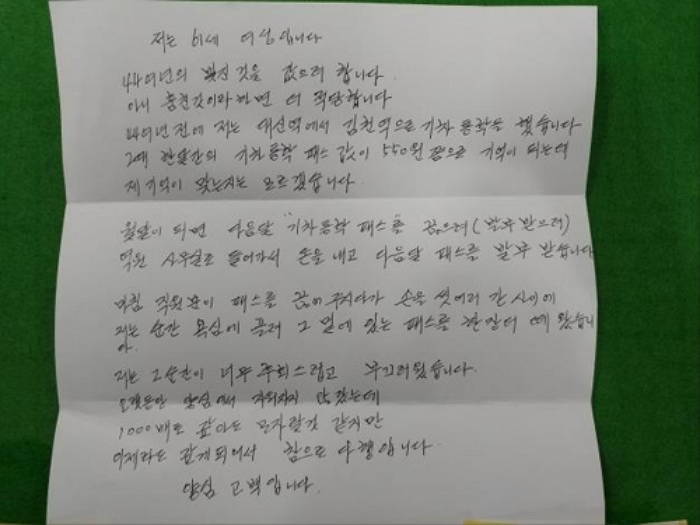 저는 61세 여성입니다
44여년의 빚진 것을 갚으려 합니다.
아니 훔친것이라 하면 더 적당합니다
44여년 전에 저는 대신역에서 김천역으로 기차 통학을 했습니다
그때 한달간의 기차 통학 패스 값이 550원 쯤으로 기억이 되는데
제 기억이 맞는지는 모르겠습니다.
월말이 되면 다음달 "기차통학 패스를 끊으려 (발부 받으려)
역원 사무실로 들어가서 돈을 내고 다음달 패스를 발부 받습니다
마침 직원분이 패스를 끊어 주시다가 손을 씻으러 간 사이에
저는 순간 욕심에 끌려 그 밑에 있는 패스를 한장 더 떼 왔습니
다.
저는 그순간이 너무 후회스럽고 부끄러웠습니다.
오랫동안 양심에서 지워지지 않았는데
1000배로 갚아도 모자랄것 같지만
이제라도 갚게되어서 참으로 다행입니다.
양심 고백입니다.